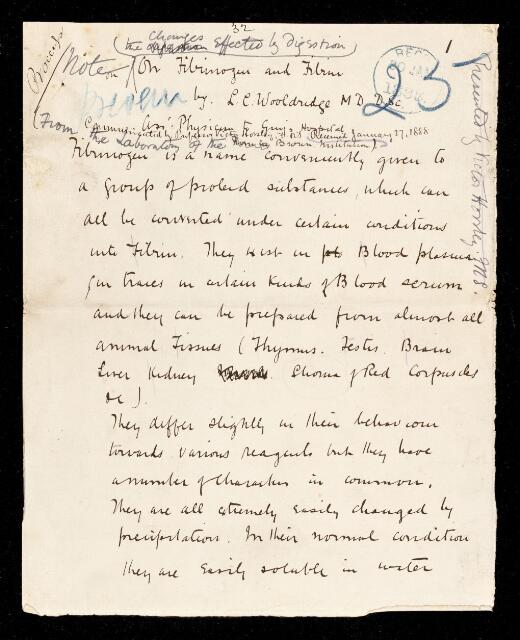 32
1
(the changes effected by Digestion)
Process
Note on On Fibrinogen and Fibrin
REC
20 JA
1888
23
by. L.C. Wooldridge M.D. D.Sc.
Ass. Physician to Guy's Hospital
Communicated by Professor Victor Horsley, F.R.S. Received January 17, 1888
(From the Laboratory of the Brown Institution)
Presented by Victor Horsley FRS.
Fibrinogen is a name conveniently given to
a group of proteid substances, which can
all be converted under certain conditions
into Fibrin. They exist in Blood plasma
(in traces in certain kinds of Blood serum
and they can be prepared from almost all
animal Tissues (Thymus. Testes. Brain
Liver Kidney Stroma of Red Corpuscles
&c).
They differ slightly in their behaviour
towards various reagents but they have
a number of characters in common.
They are all extremely easily changed by
precipitation. In their normal condition
they are easily soluble in water